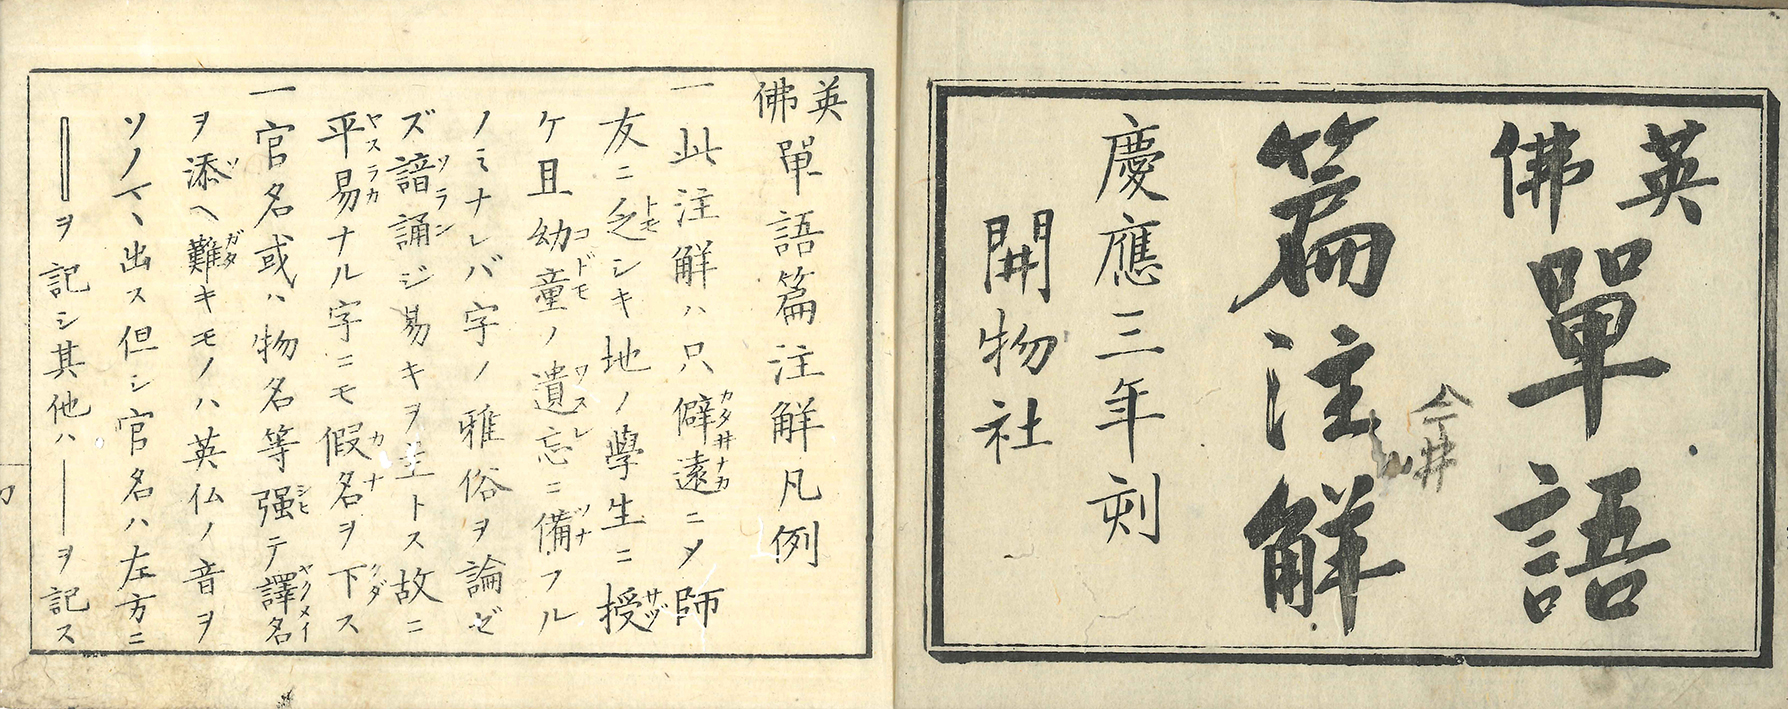 英佛單語
篇注觧
慶應三年刻
開物社
英佛單語篇注觧凡例
一此注觧ハ只僻遠ニメ師
友ニ乏シキ地ノ學生ニ授
ケ且幼童ノ遺忘ニ備フル
ノミナレバ字ノ雅俗ヲ論ゼ
ズ諳誦ジ易キヲ主トス故ニ
平易ナル字ニモ假名ヲ下ス
一官名或ハ物名等强テ譯名
ヲ添ヘ難キモノハ英仏ノ音ヲ
ソノマヽ出ス但シ官名ハ左方ニ
ヲ記シ其他ハ――ヲ記ス